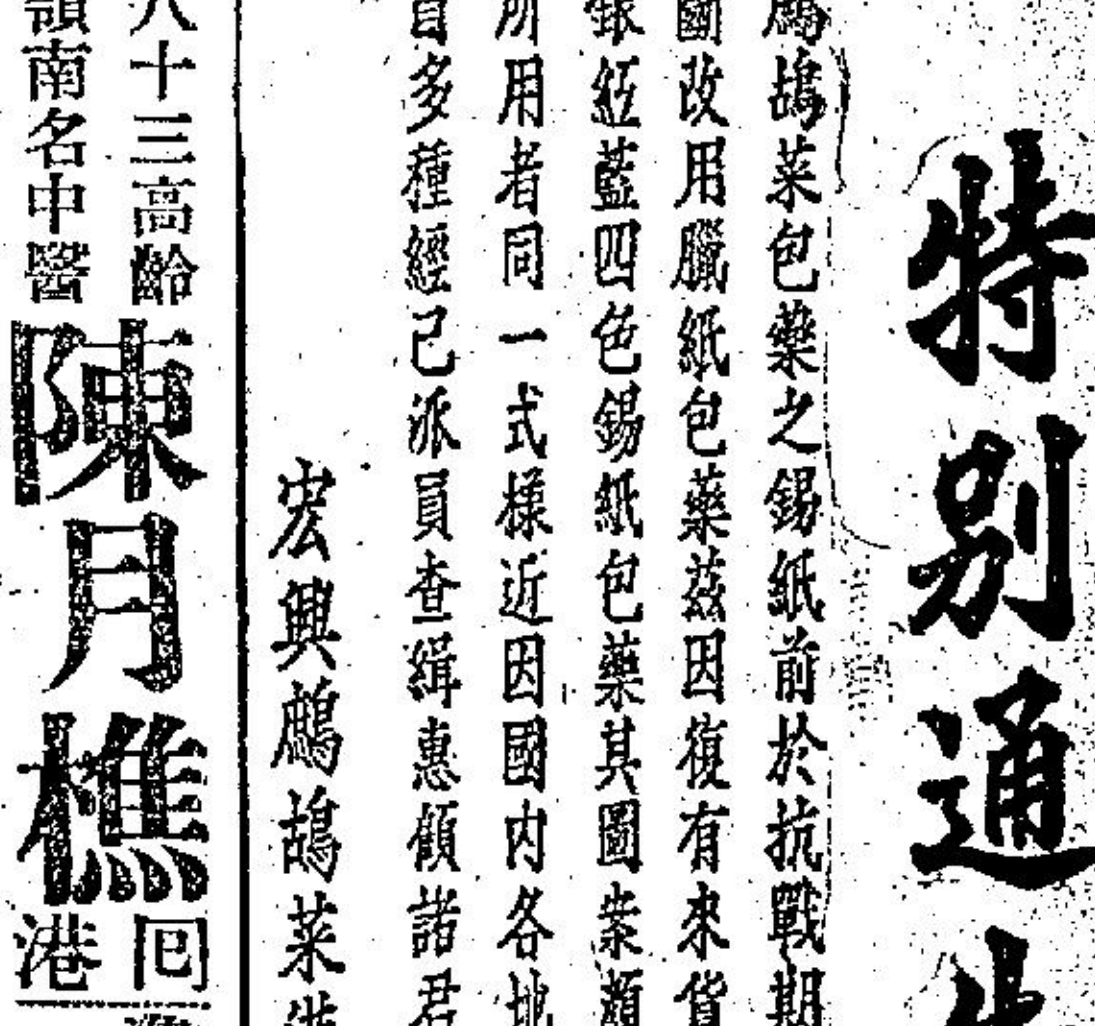 特別通告
鷓鴣菜包藥之錫紙前於抗戰期
斷改用臘紙包藥茲因復有來貨
銀紅藍四色錫紙包藥其圖案顏
所用者同一式樣近因國內各地
多種經已派員查緝惠顧諸君
宏興鷓鴣菜
八十三高齡
嶺南名中醫
陳月樵
回港